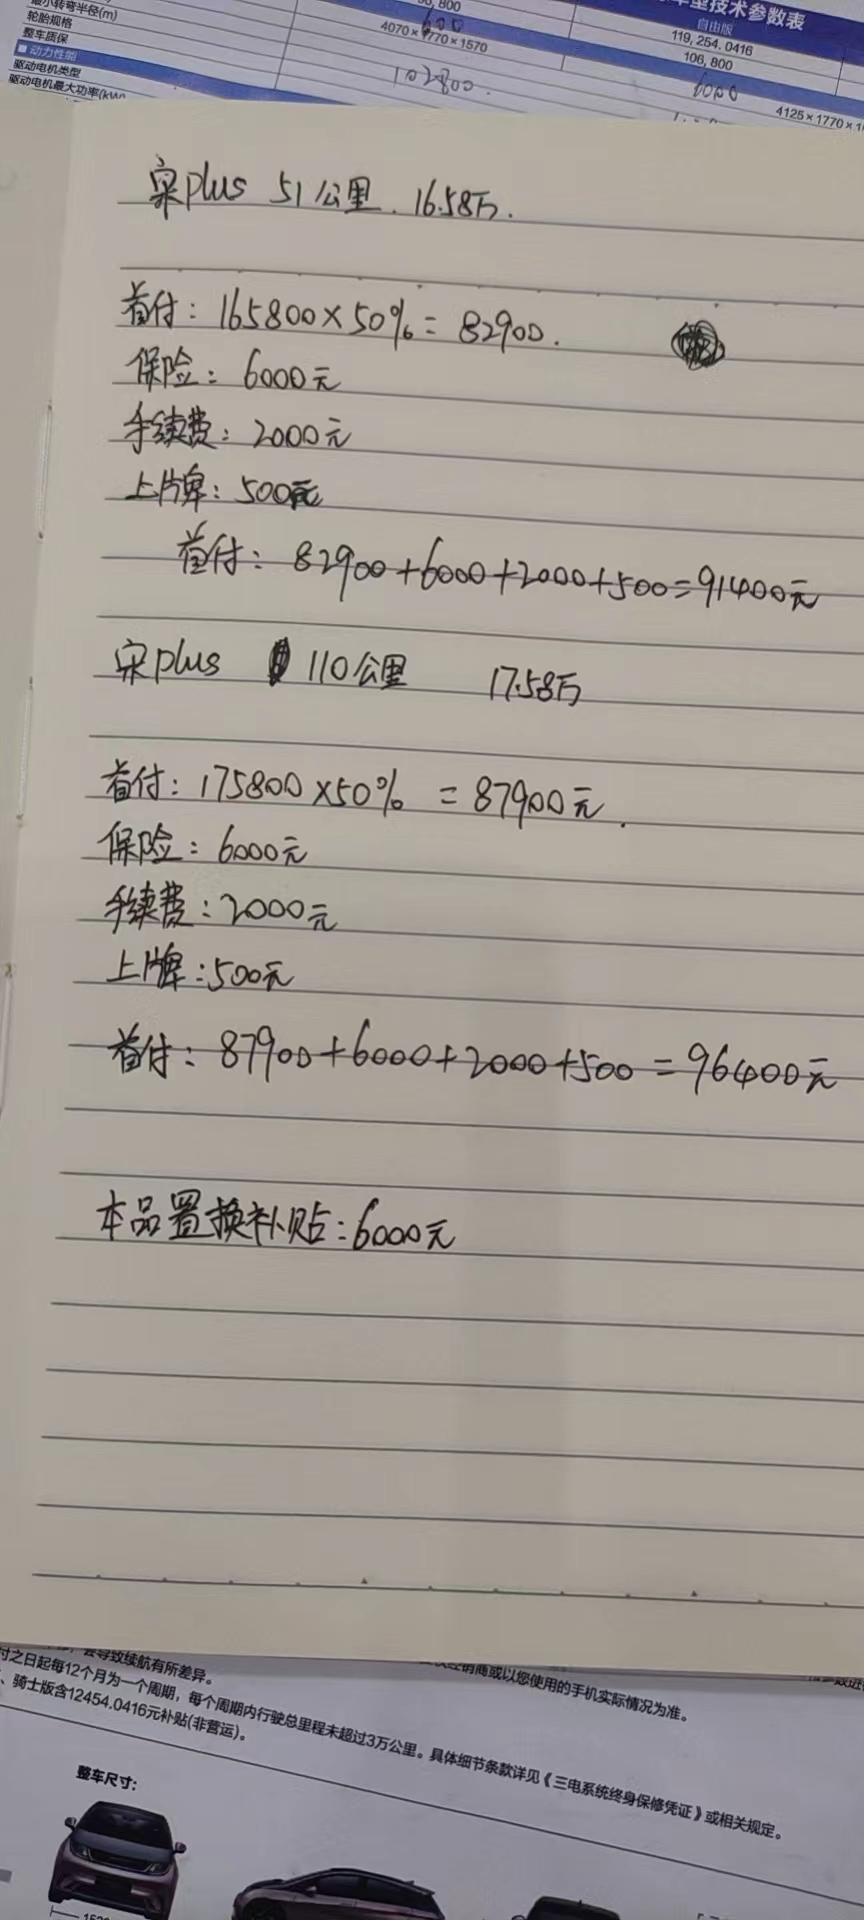 最小转弯半径(m)
轮胎规格
整车质保
动力性能
驱动电机类型
驱动电机最大功率(kW)
600
4070×1770×1570
102800.
车型技术参数表
自由版
119,254.0416
106,800
6000
宋plus 51公里. 16.58万.
首付: 165800×50%=82900.
保险: 6000元
手续费: 2000元
上牌: 500元
首付: 82900+6000+2000+500=91400元
宋plus 110公里 17.58万
首付: 175800×50% =87900元.
保险: 6000元
手续费: 2000元
上牌: 500元
首付: 87900+6000+2000+500=96400元
本品置换补贴: 6000元
会导致续航有所差异。
付之日起每12个月为一个周期，每个周期内行驶总里程未超过3万公里。具体细节条款详见《三电系统终身保修凭证》或相关规定。
、骑士版含12454.0416元补贴(非营运)。
经销商或以您使用的手机实际情况为准。
整车尺寸: